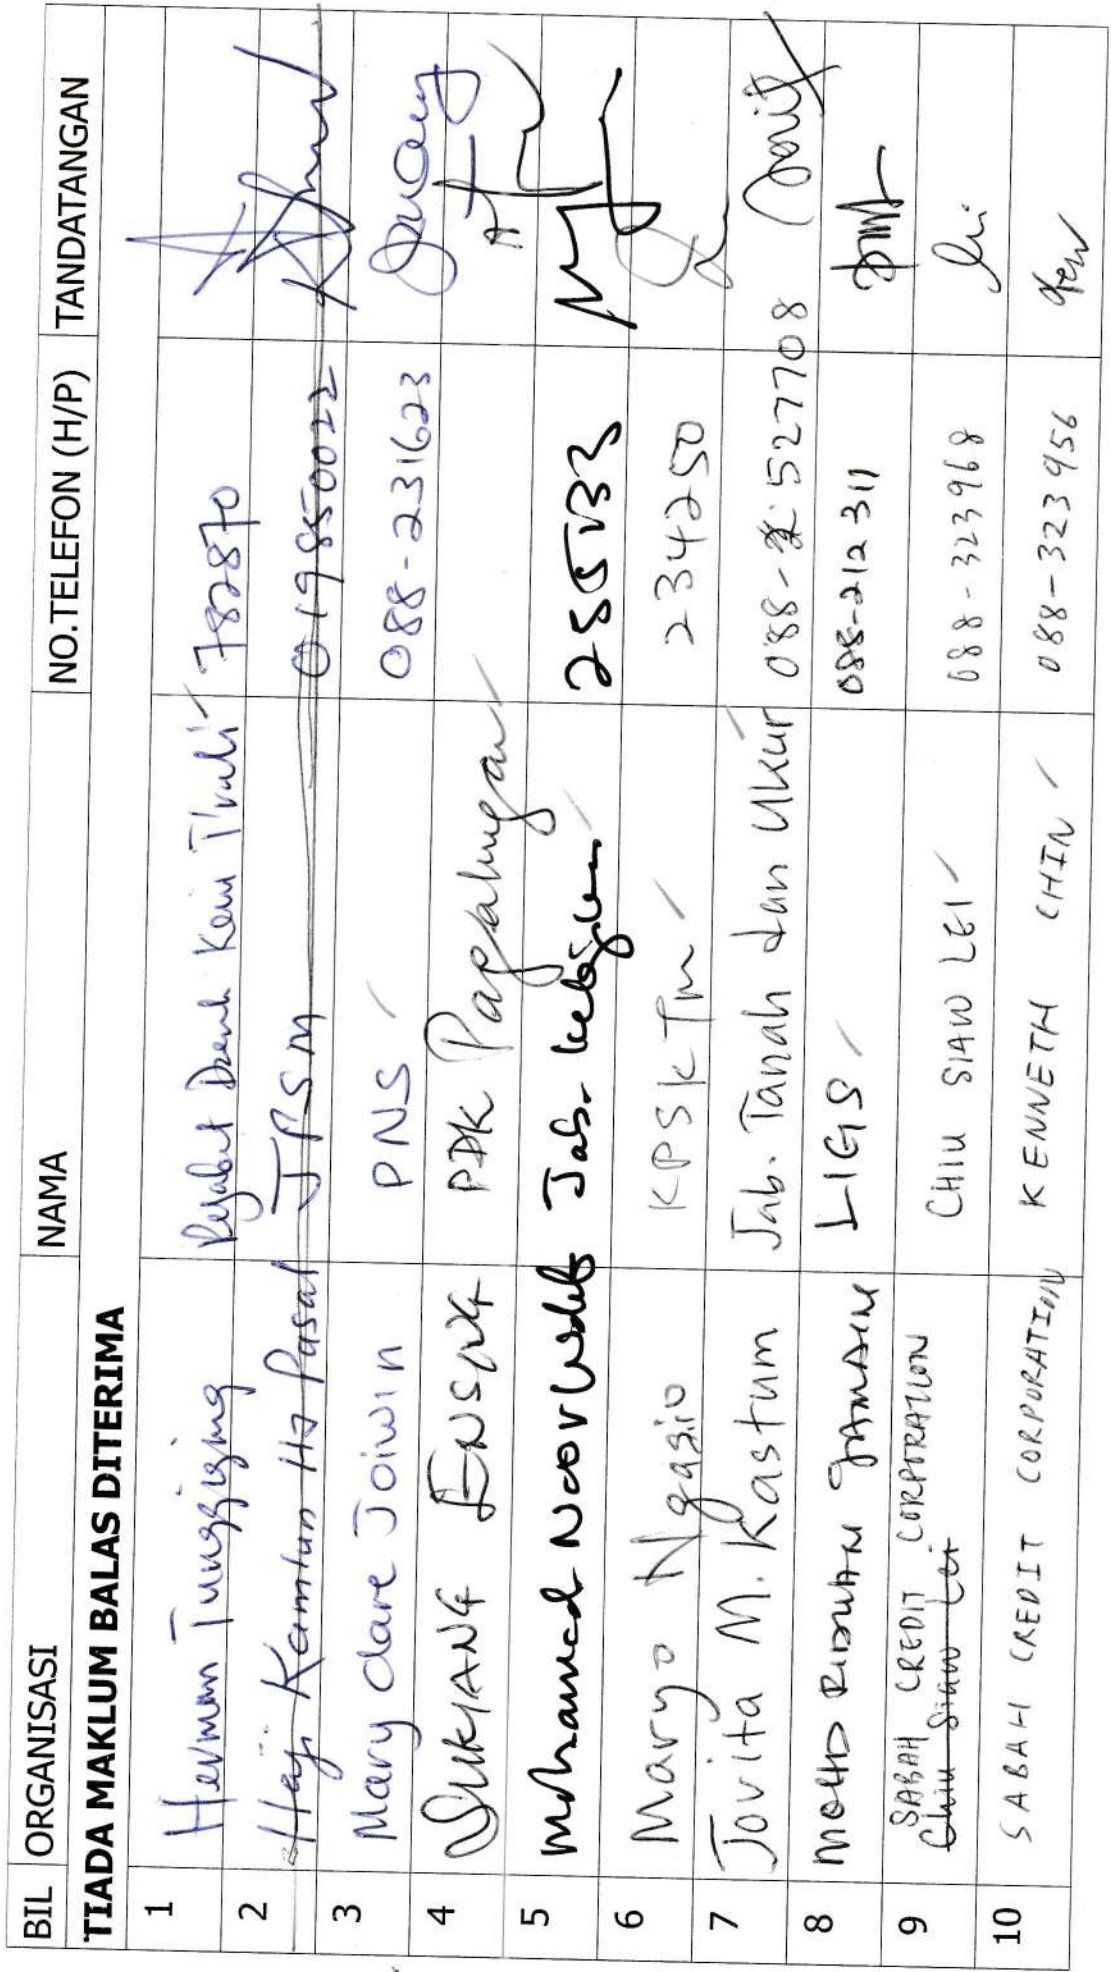 BIL ORGANISASI NAMA NO.TELEFON (H/P) TANDATANGAN
TIADA MAKLUM BALAS DITERIMA
1 Herman Tunggiging Pejabat Daerah Kecil 782870
2 Haji Kamlun Hj Pasal JPSM 0198850022
3 Mary Clare Joiwin PNS 088-231623
4 ENSING PDK Papalungan
5 Mohamad Noor Jab. 285133
6 Maryo Ngasio KPSKTM 234250
7 Jovita M. Kastum Jab. Tanah dan Ukur 088-527708
8 MOHD RIDUAN JAMAINE LIGS 088-212311
9 SABAH CREDIT CORPORATION CHIU SIAW LEI 088-323968
Chiu Siaw Lei
10 SABAH CREDIT CORPORATION KENNETH CHIN 088-323956